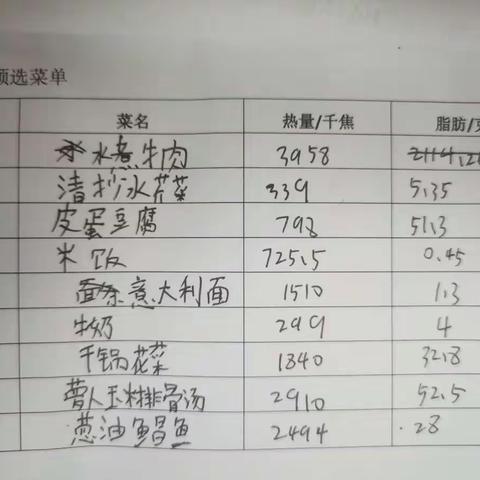 预选菜单
菜名 热量/千焦 脂肪/克
水煮牛肉 3958
清炒水芹菜 339 5.35
皮蛋豆腐 798 51.3
米饭 725.5 0.45
意大利面 1510 1.3
牛奶 299 4
干锅花菜 1840 32.8
萝人玉米排骨汤 2910 52.5
葱油鲳鱼 2494 28